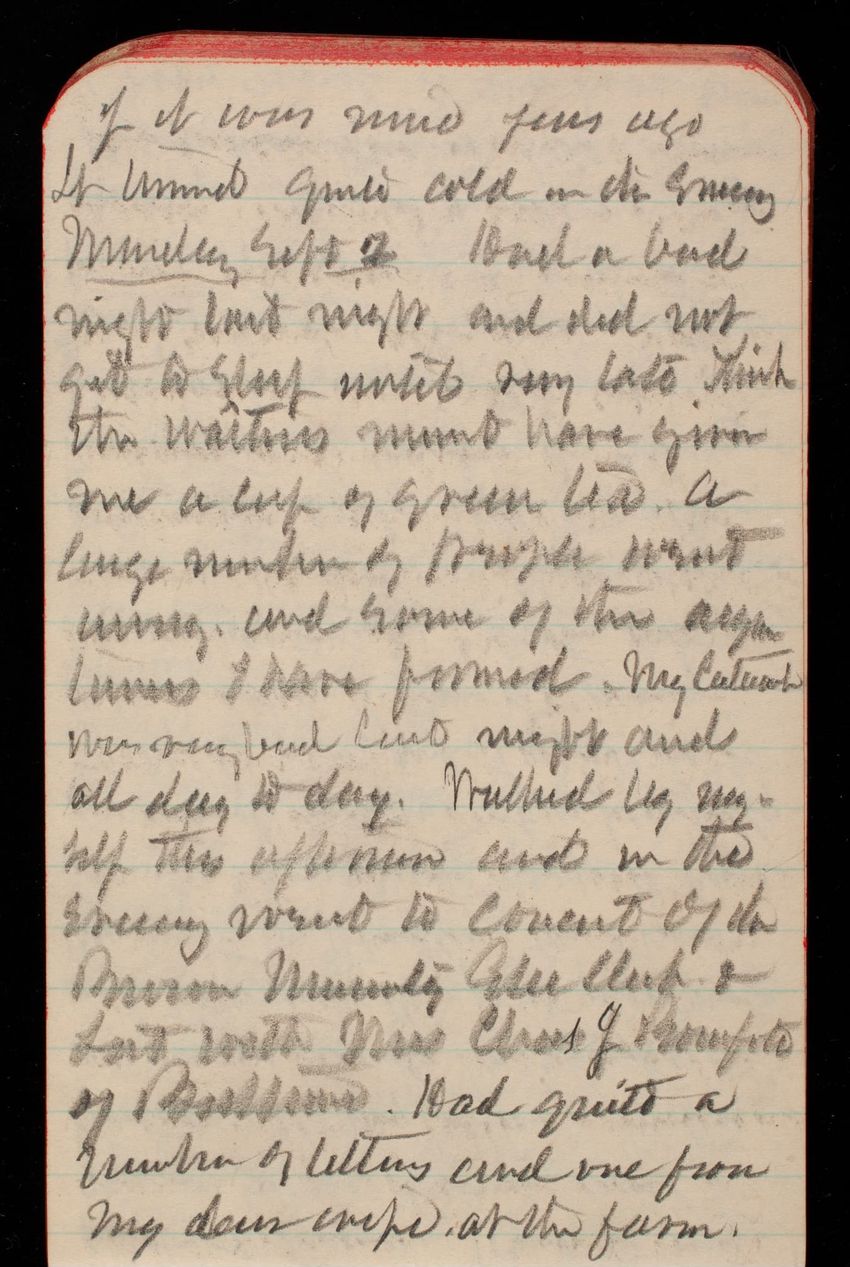 if it was nine years ago
It turned quite cold in the Evening
Monday Sept 2 Had a bad
night last night and did not
get to Sleep until very late think
the Waitress must have given
me a cup of green tea. A
large number of people went
away. and Some of the acquain
tances I have formed. My Catarrh
was very bad last night and
all day to day. Walked by my-
self this afternoon and in the
Evening went to Concert of the
Brown University Glee Club &
Sat with Mrs Chas J
of. Had quite a
number of letters and one from
My dear wife. at the farm.